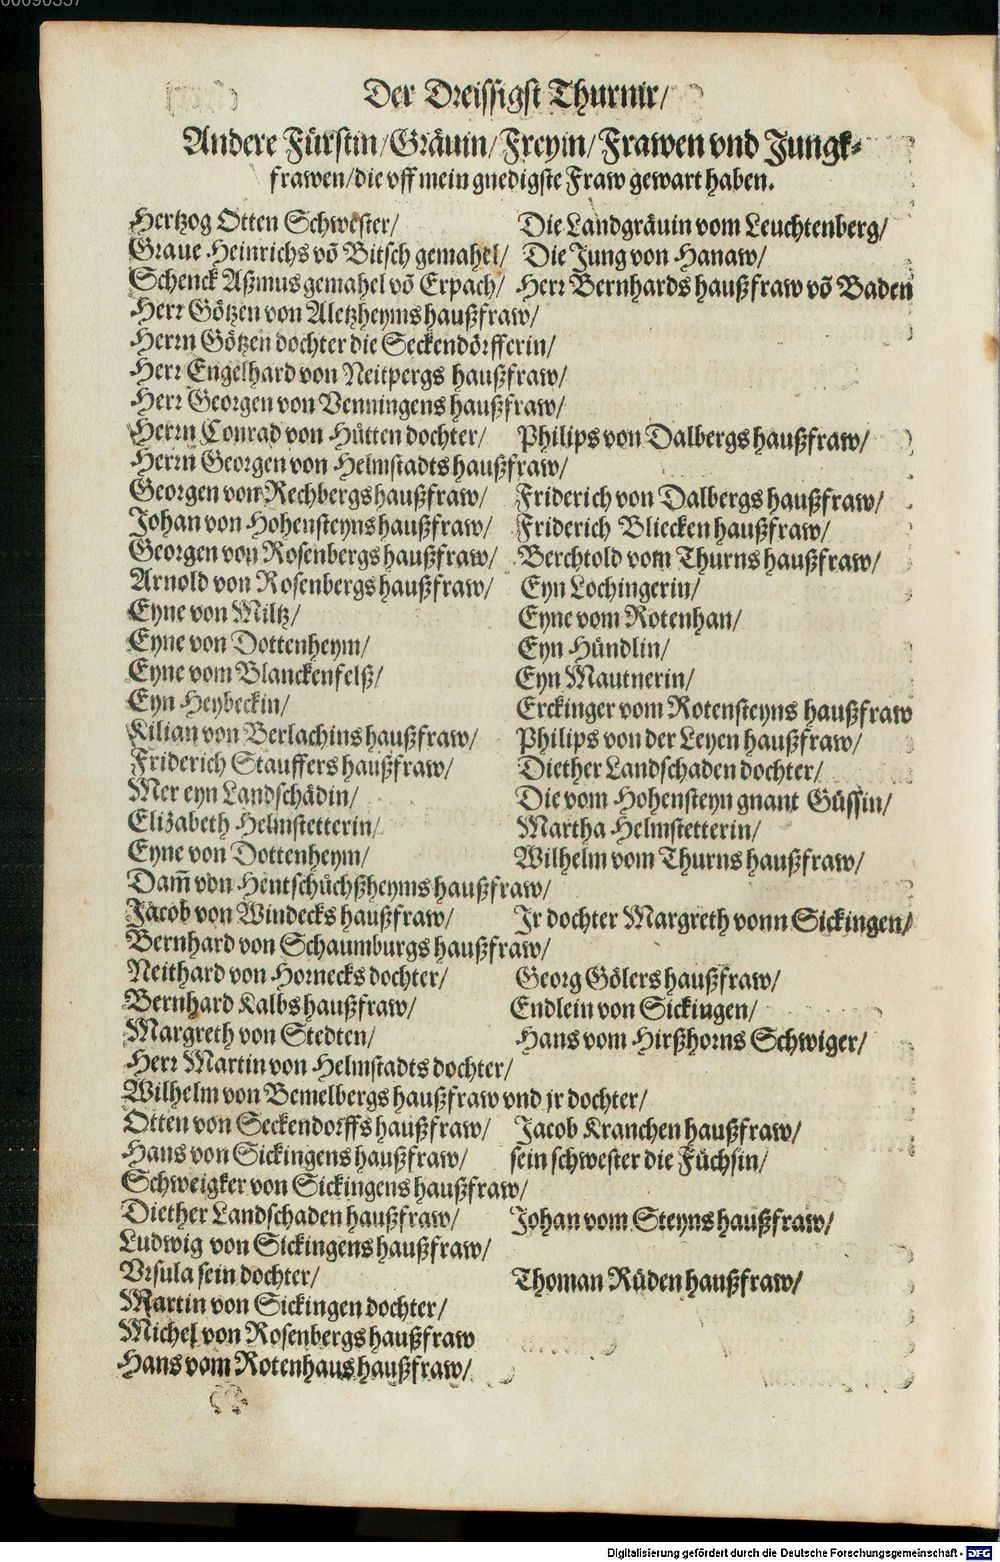 00090357
Der Dreissigst Thurnir/
Andere Fürstin/Gräuin/Freyin/Frawen vnd Jungk-
frawen/die vff mein gnedigste Fraw gewart haben.
Hertzog Otten Schwester/ Die Landgräuin vom Leuchtenberg/
Graue Heinrichs võ Bitsch gemahel/ Die Jung von Hanaw/
Schenck Aßmus gemahel võ Erpach/ Herr Bernhards haußfraw võ Baden
Herr Götzen von Aletzheyms haußfraw/
Herrn Götzen dochter die Seckendörfferin/
Herr Engelhard von Neitpergs haußfraw/
Herr Georgen von Venningens haußfraw/
Herrn Conrad von Hütten dochter/ Philips von Dalbergs haußfraw/
Herrn Georgen von Helmstadts haußfraw/
Georgen von Rechbergs haußfraw/ Friderich von Dalbergs haußfraw/
Johan von Hohensteyns haußfraw/ Friderich Bliecken haußfraw/
Georgen von Rosenbergs haußfraw/ Berchtold vom Thurns haußfraw/
Arnold von Rosenbergs haußfraw/ Eyn Lochingerin/
Eyne von Miltz/ Eyne vom Rotenhan/
Eyne von Dottenheym/ Eyn Hündlin/
Eyne vom Blanckenfelß/ Eyn Mautnerin/
Eyn Heybeckin/ Erckinger vom Rotensteyns haußfraw
Kilian von Berlachins haußfraw/ Philips von der Leyen haußfraw/
Friderich Stauffers haußfraw/ Diether Landschaden dochter/
Mer eyn Landschädin/ Die vom Hohensteyn gnant Güssin/
Elizabeth Helmstetterin/ Martha Helmstetterin/
Eyne von Dottenheym/ Wilhelm vom Thurns haußfraw/
Dam̃ von Hentschüchßheyms haußfraw/
Jacob von Windecks haußfraw/ Jr dochter Margreth vonn Sickingen/
Bernhard von Schaumburgs haußfraw/
Neithard von Hornecks dochter/ Georg Gölers haußfraw/
Bernhard Kalbs haußfraw/ Endlein von Sickingen/
Margreth von Stedten/ Hans vom Hirßhorns Schwiger/
Herr Martin von Helmstadts dochter/
Wilhelm von Bemelbergs haußfraw vnd jr dochter/
Otten von Seckendorffs haußfraw/ Jacob Kranchen haußfraw/
Hans von Sickingens haußfraw/ sein schwester die Füchsin/
Schweigker von Sickingens haußfraw/
Diether Landschaden haußfraw/ Johan vom Steyns haußfraw/
Ludwig von Sickingens haußfraw/
Vrsula sein dochter/ Thoman Rüden haußfraw/
Martin von Sickingen dochter/
Michel von Rosenbergs haußfraw
Hans vom Rotenhaus haußfraw/
Digitalisierung gefördert durch die Deutsche Forschungsgemeinschaft - DFG